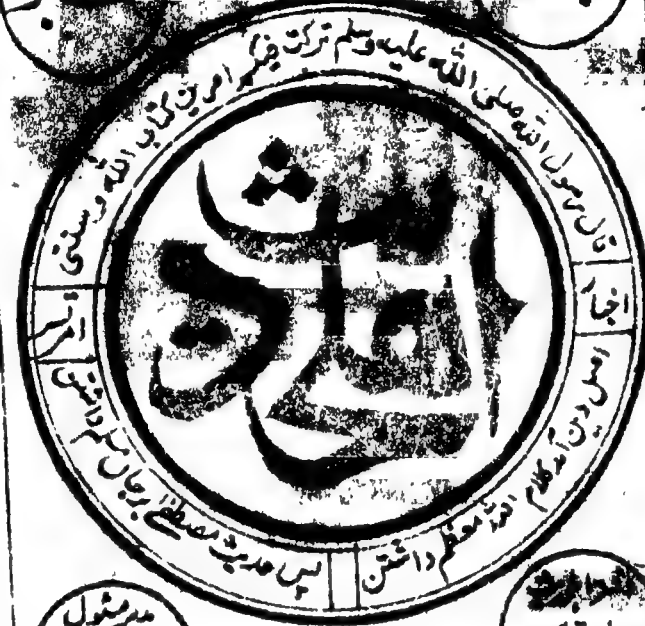 قال رسول الله صلی الله علیه وسلم ترکت فیکم امرین کتاب الله و سنتی
اخبار
اہلحدیث
اصل دین آمد کلام اللہ معظم داشتن
پس حدیث مصطفےٰ برجاں مسلم داشتن
مدیر مسئول